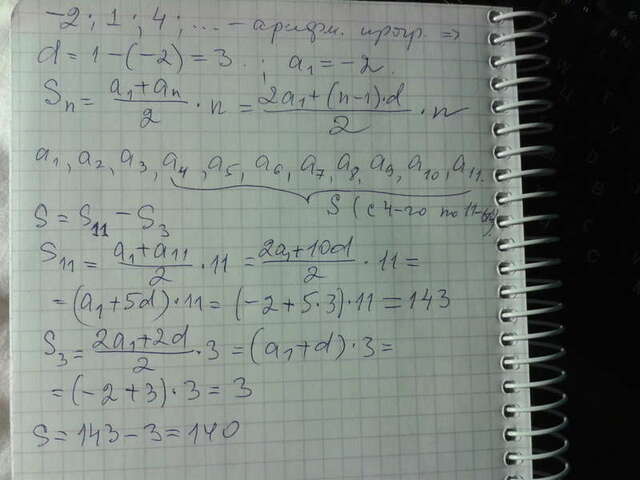 -2; 1; 4; ... - арифм. прогр. =>
d = 1-(-2) = 3 ; a₁ = -2.
Sₙ = (a₁+aₙ)/2 · n = (2a₁+(n-1)·d)/2 · n
a₁, a₂, a₃, a₄, a₅, a₆, a₇, a₈, a₉, a₁₀, a₁₁.
S (с 4-го по 11-ый)
S = S₁₁ - S₃
S₁₁ = (a₁+a₁₁)/2 · 11 = (2a₁+10d)/2 · 11 =
= (a₁+5d)·11 = (-2+5·3)·11 = 143
S₃ = (2a₁+2d)/2 · 3 = (a₁+d)·3 =
= (-2+3)·3 = 3
S = 143-3 = 140